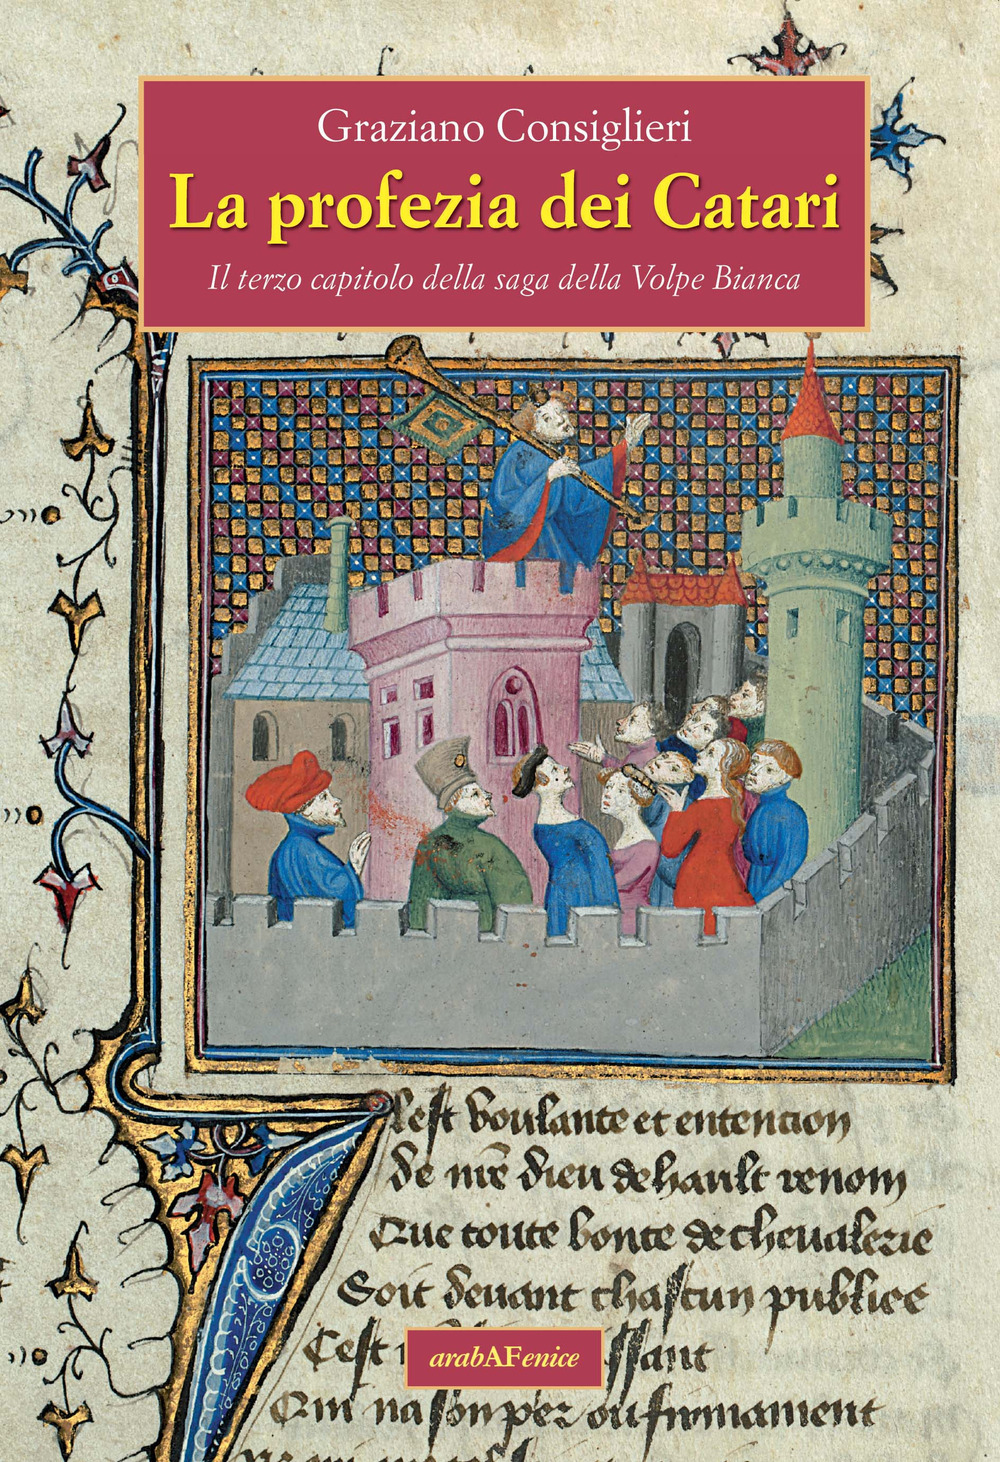 Graziano Consiglieri
La profezia dei Catari
Il terzo capitolo della saga della Volpe Bianca
lest voulante et entencion
de nr̄e dieu de hault renom
Que toute bonte de cheualerie
Soit deuant chascun publiee
Cest ssant
Qui na son per ou firmament
arabAFenice